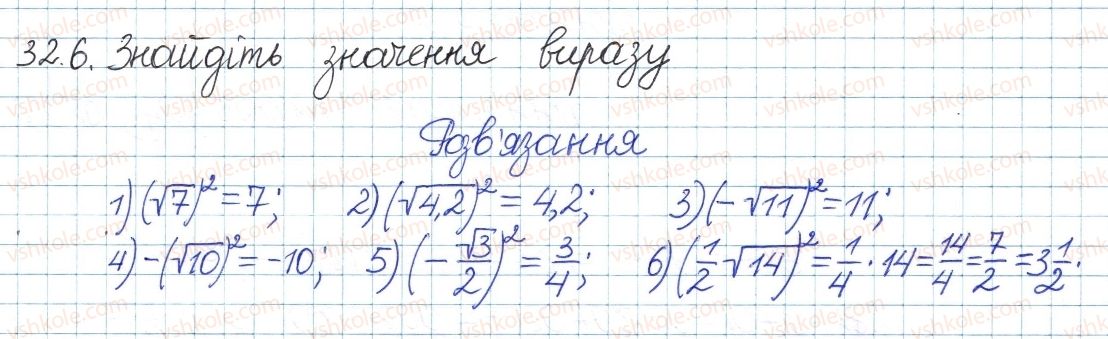 32.6. Знайдіть значення виразу
Розв'язання
1) (√7)² = 7; 2) (√4,2)² = 4,2; 3) (-√11)² = 11;
4) -(√10)² = -10; 5) (-√3/2)² = 3/4; 6) (1/2 √14)² = 1/4 · 14 = 14/4 = 7/2 = 3 1/2.